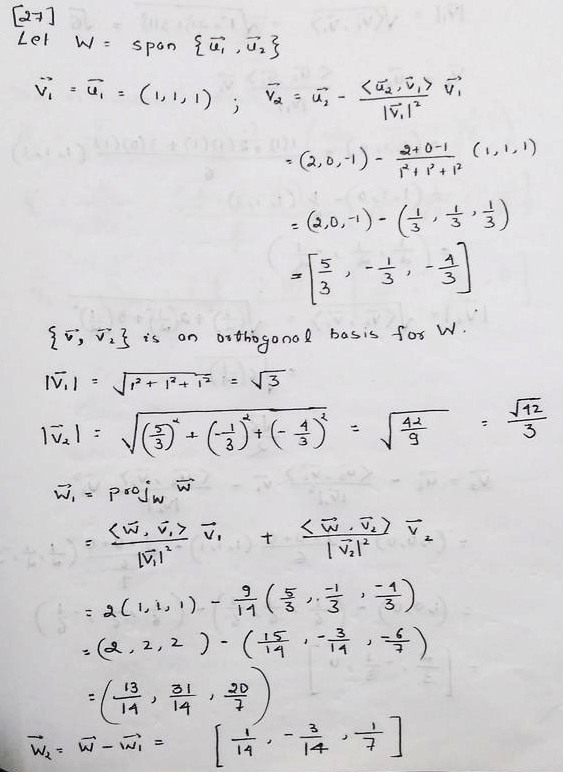 [27]
Let W = span {u⃗₁, u⃗₂}
v⃗₁ = u⃗₁ = (1, 1, 1) ; v⃗₂ = u⃗₂ - <u⃗₂, v⃗₁>/|v⃗₁|² v⃗₁
= (2, 0, -1) - (2+0-1)/(1²+1²+1²) (1, 1, 1)
= (2, 0, -1) - (1/3, 1/3, 1/3)
= [5/3, -1/3, -4/3]
{v⃗, v⃗₂} is an orthogonal basis for W.
|v⃗₁| = √(1²+1²+1²) = √3
|v⃗₂| = √((5/3)² + (-1/3)² + (-4/3)²) = √(42/9) = √42/3
w⃗₁ = proj_W w⃗
= <w⃗, v⃗₁>/|v⃗₁|² v⃗₁ + <w⃗, v⃗₂>/|v⃗₂|² v⃗₂
= 2(1, 1, 1) - 9/14 (5/3, -1/3, -4/3)
= (2, 2, 2) - (15/14, -3/14, -6/7)
= (13/14, 31/14, 20/7)
w⃗₂ = w⃗ - w⃗₁ = [1/14, -3/14, 1/7]